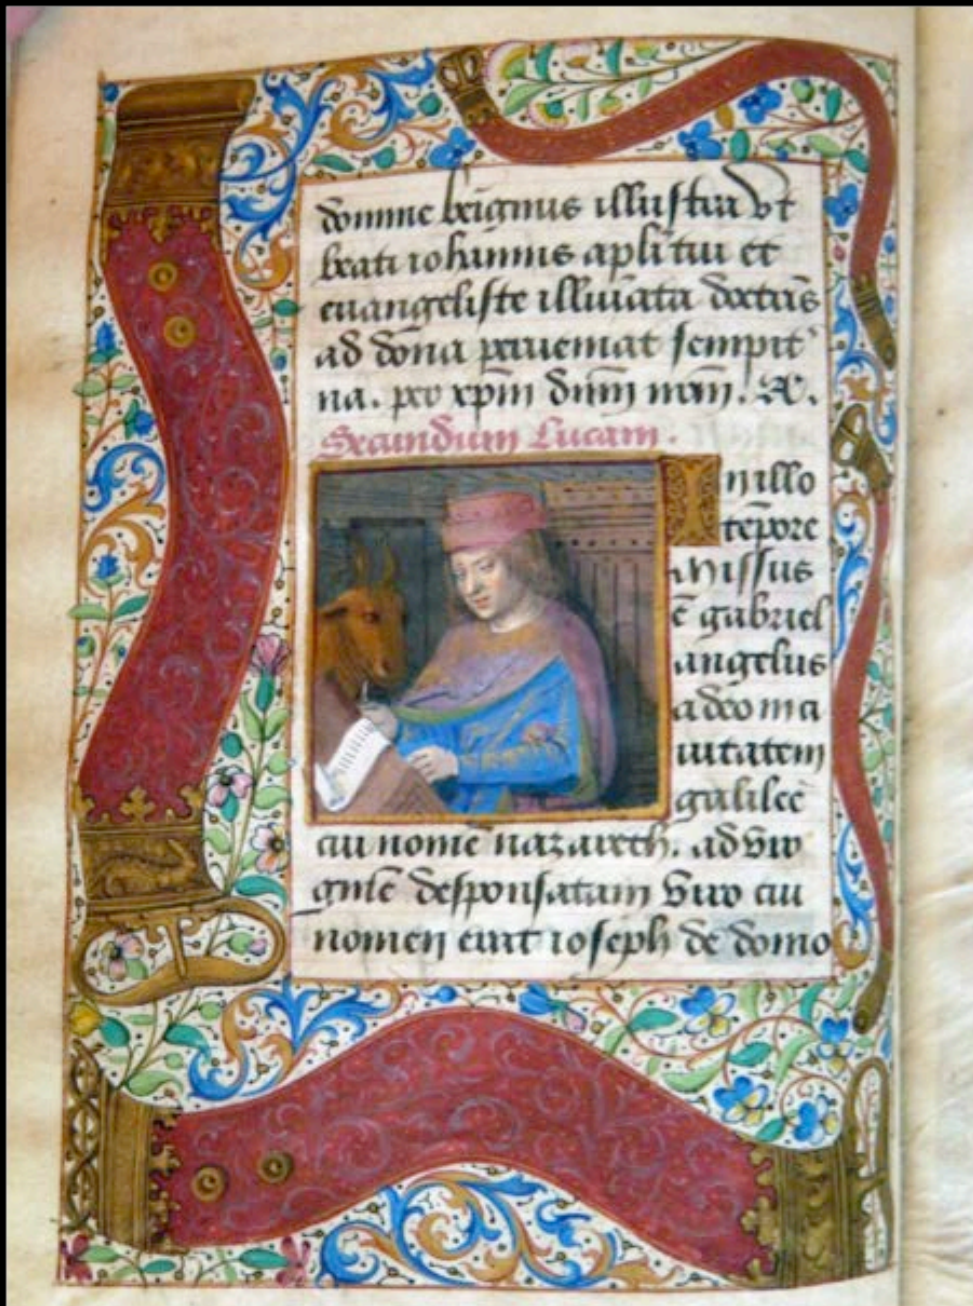 domine benignus illustra vt
beati iohannis apl̄i tui et
euangeliste illuīata doctrīs
ad dona perueniat sempit̾
na. per xp̄m dn̄m nr̄m. A.
Secundum Lucam.
In illo
tēpore
Missus
ē gabriel
angelus
a deo in ci
uitatem
galilee
cui nomē nazareth. ad vir
ginē desponsatam viro cui
nomen erat ioseph de domo